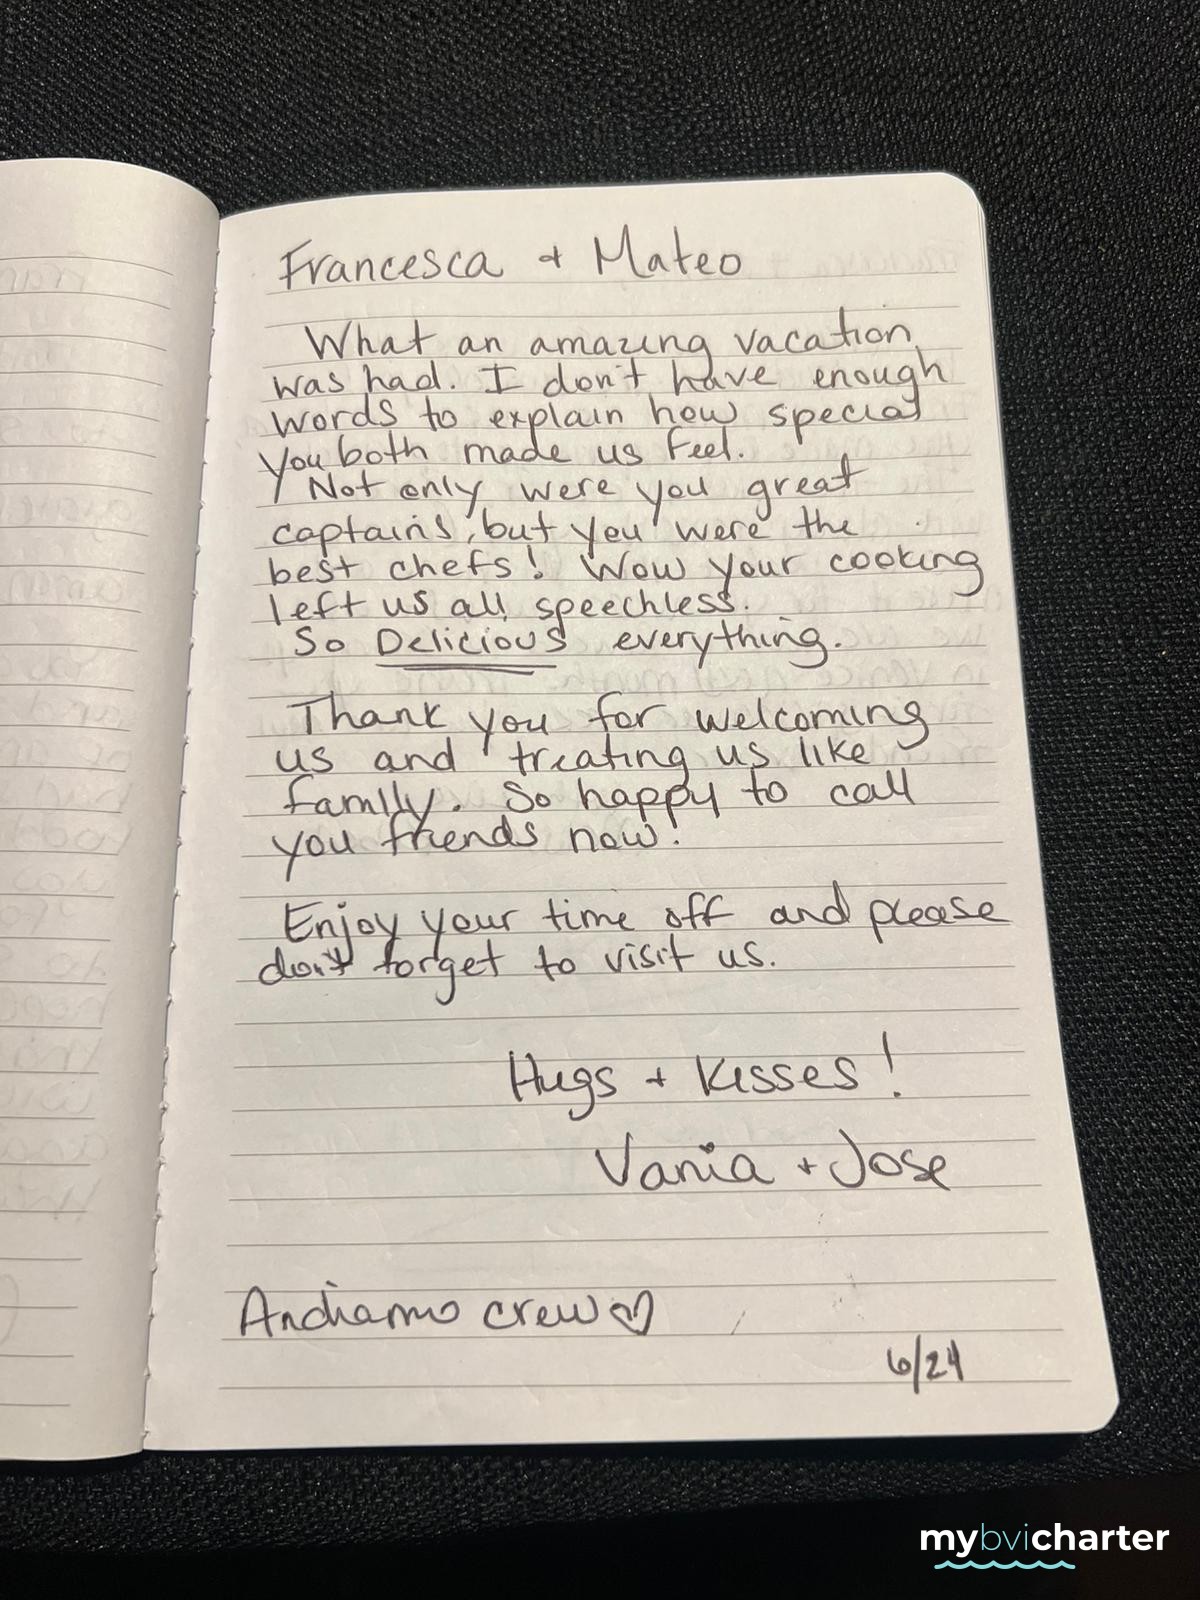 Francesca + Mateo
What an amazing vacation
was had. I don't have enough
words to explain how special
you both made us feel.
Not only were you great
captains, but you were the
best chefs! Wow your cooking
left us all speechless.
So Delicious everything.
Thank you for welcoming
us and treating us like
family. So happy to call
you friends now!
Enjoy your time off and please
don't forget to visit us.
Hugs + Kisses!
Vania + Jose
Andiamo crew♡
6/24
mybvicharter